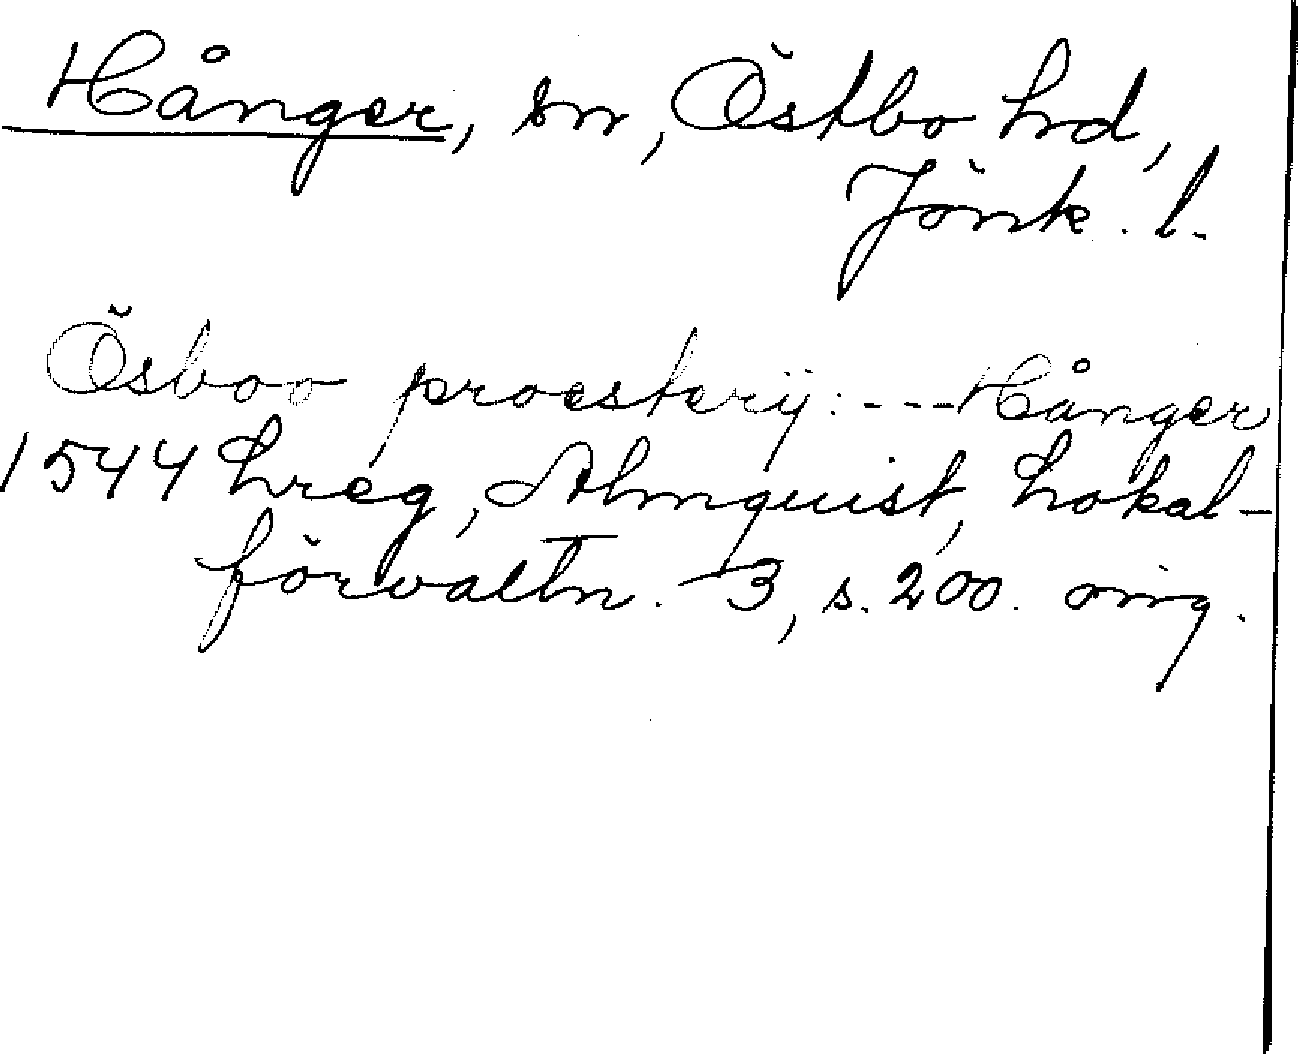 Hånger, sn, Östbo hd,
Jönk. l.
Ösboo proesterij: --- Hånger
1544 hreg, Almquist, Lokal-
förvaltn. 3, s. 200. orig.